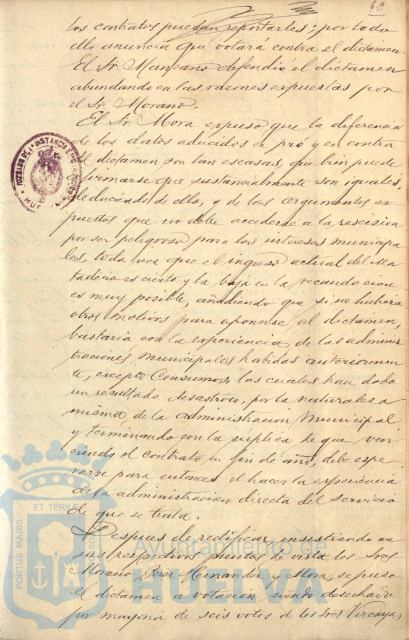 68
los contratos puedan reportarles; por todo
ello anuncia que votará contra el dictamen.
El Sr. Manzano defendió el dictamen
abundando en las razones espuestas por
el Sr. Morano.
El Sr. Mora espuso que la diferencia
de los datos aducidos en pró y en contra
del dictamen son tan escasas, que bien puede
afirmarse que sustancialmente son iguales,
deduciendo de ellos, y de los argumentos es-
puestos que no debe accederse a la rescision
por ser peligroso para los intereses municipa-
les, toda vez que el ingreso actual del Ma-
tadero es cierto y la baja en la recaudacion
es muy posible, añadiendo que si no hubiera
otros motivos para oponerse al dictamen,
bastaria con la experiencia de las adminis-
traciones municipales habidas anteriormen-
te, excepto Consumos, las cuales han dado
un resultado desastroso, por la naturaleza
misma de la administracion municipal
y terminando con la suplica de que ven-
ciendo el contrato en fin de año, debe espe-
rarse para entonces el hacer la experiencia
de la administracion directa del servicio
de que se trata.
Despues de rectificar, insistiendo en
sus respectivos puntos de vista los Sres
Morano, Hernandez y Mora, se puso
el dictamen a votacion siendo desechado
por mayoria de seis votos de los Sres
PORTUS MARIS ET TERRAE
Ayuntamiento de
HUELVA